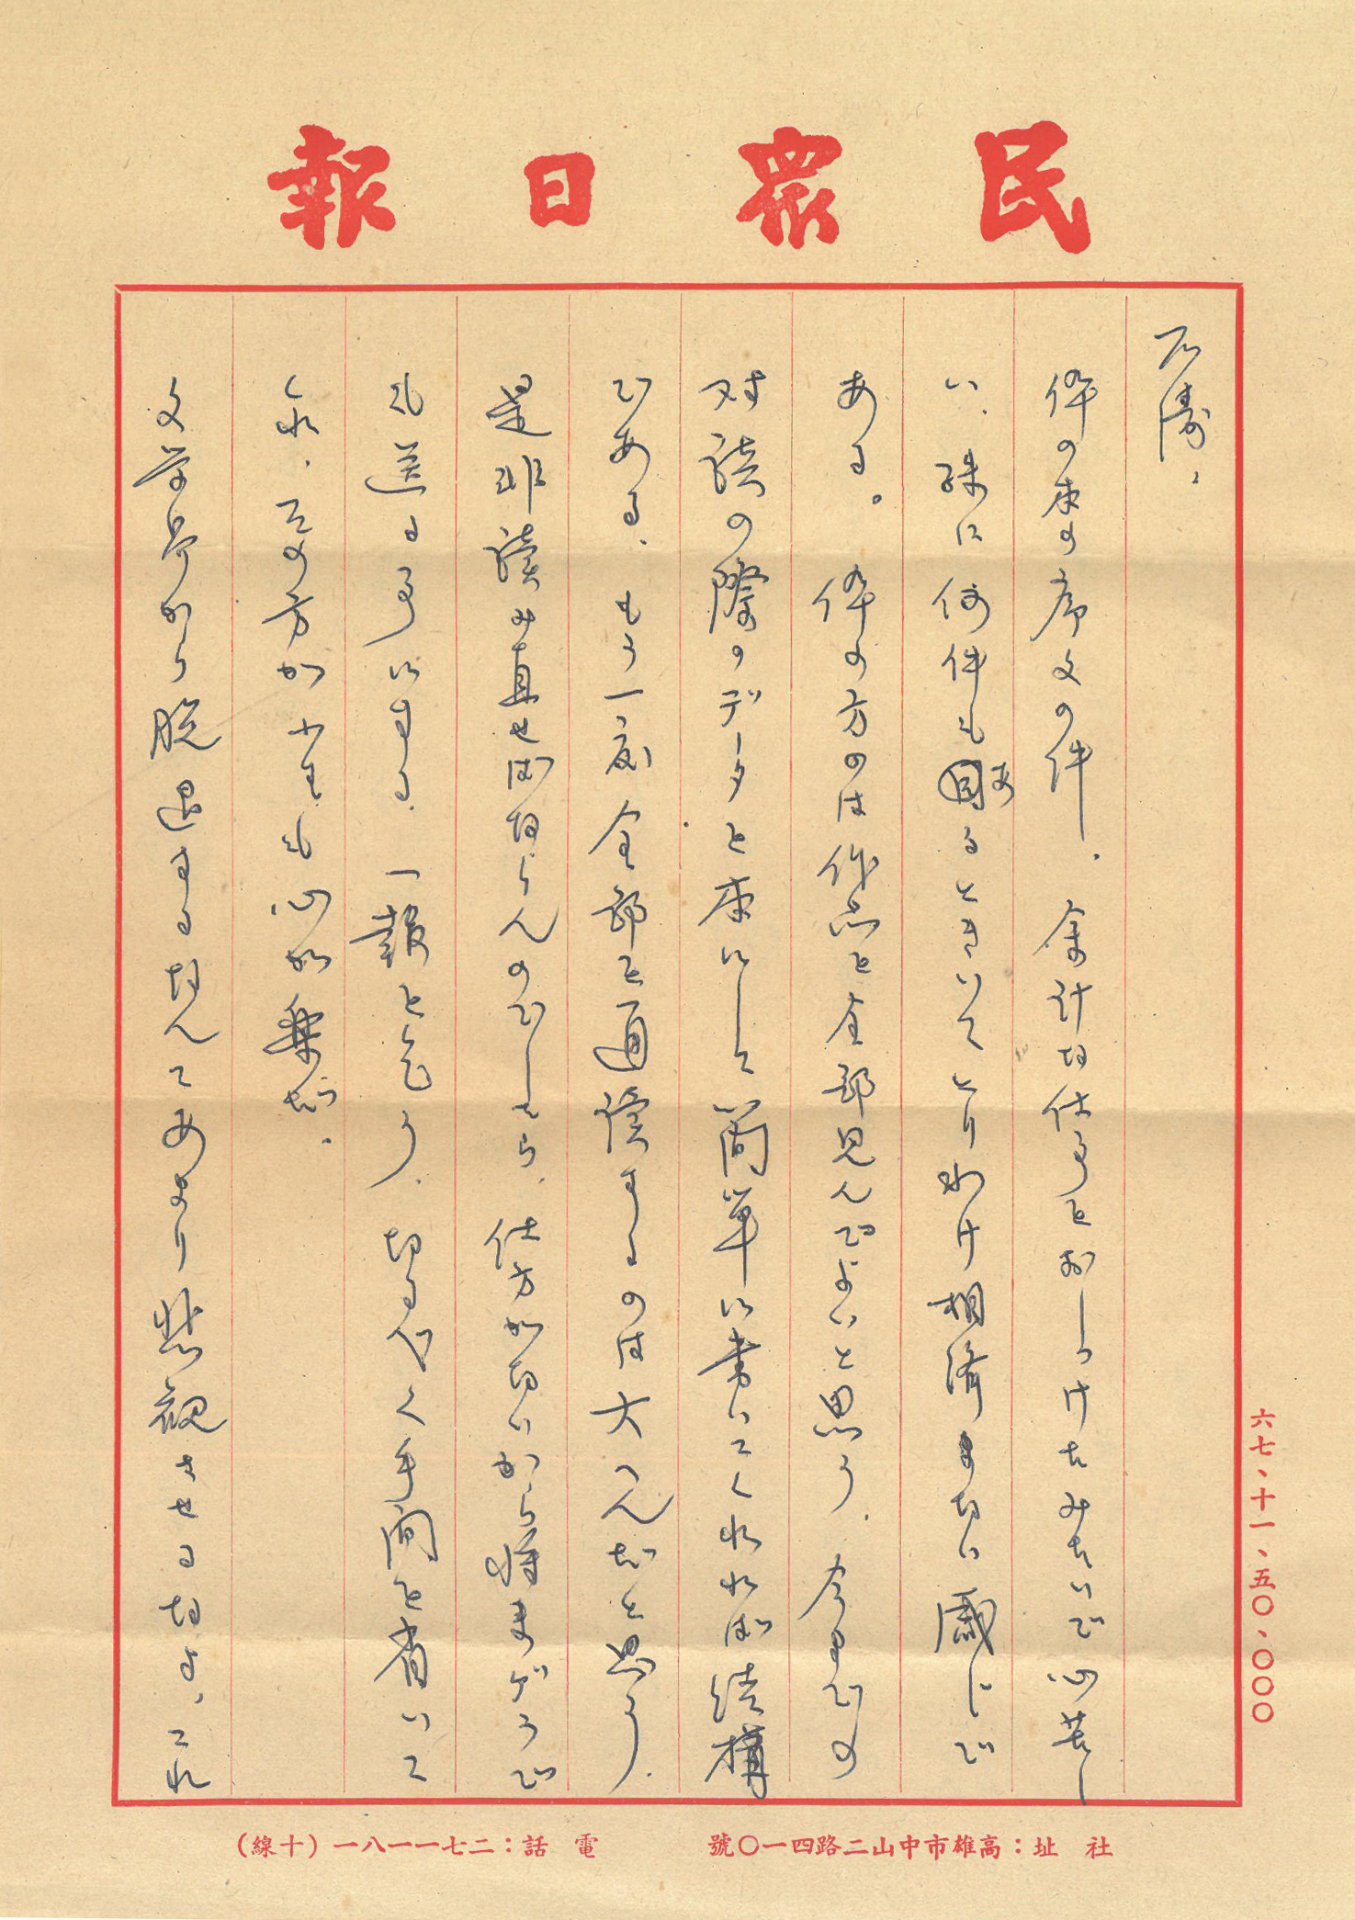 民眾日報
石濤、
伜の本の序文の件、余計な仕事をおしつけたみたいで心苦し
い、殊に何件も固まるときいてとりわけ相済まない感じで
ある。伜の方のは作品を全部見んでよいと思う、今までの
対談の際のデータを本にして簡単に書いてくれれば結構
である、もう一度全部を通読するのは大へんだと思う、
是非読み直さねばならんのでしたら、仕方がないから までどうで
も送る事にする、一報を乞う、なるべく手間を省いて
くれ、その方が少しでも心が楽だ、
文学界から脱退するなんてあまり悲観させるなよ、これ
六七、十一、五〇、〇〇〇
社址：高雄市中山二路四一〇號
電話：二七一一八一（十線）